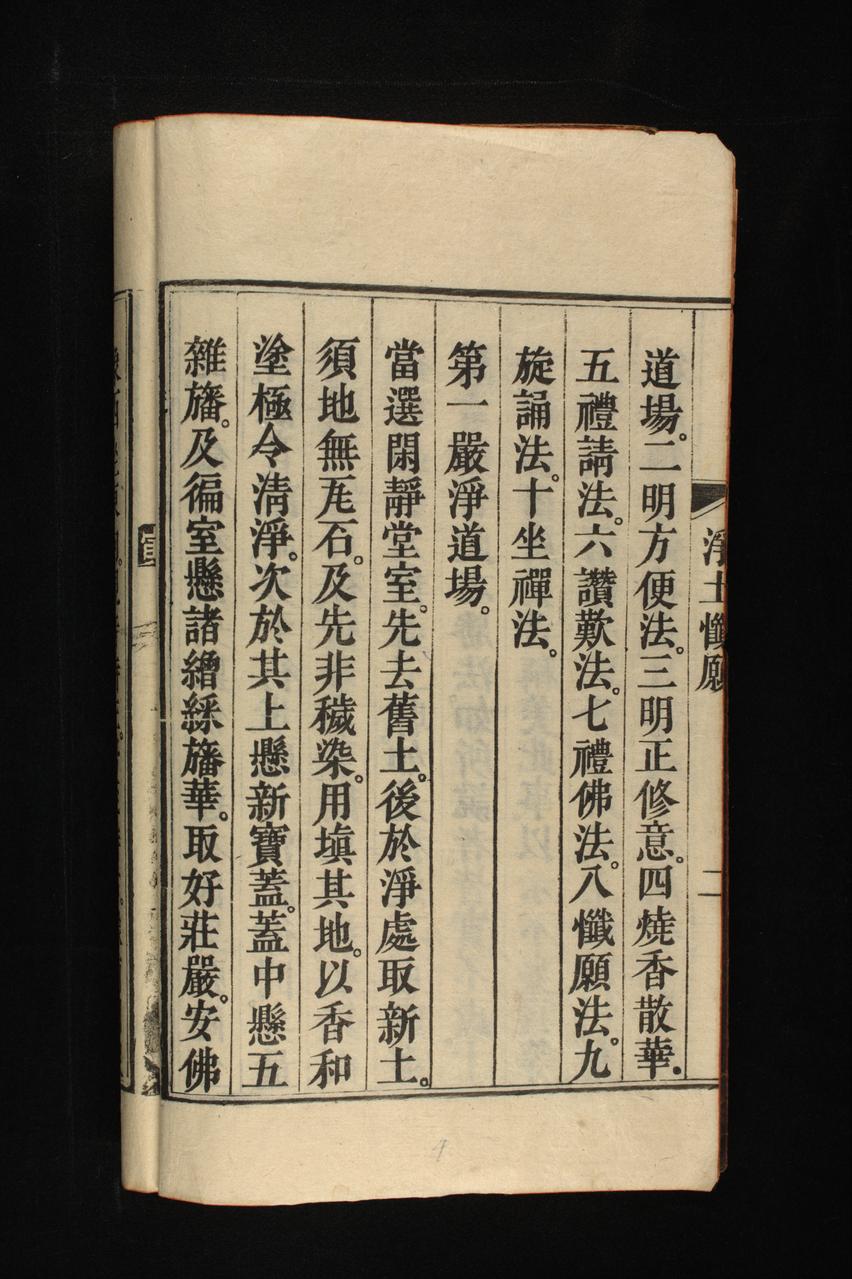 淨土懺願 二
道場。二明方便法。三明正修意。四燒香散華。
五禮請法。六讚歎法。七禮佛法。八懺願法。九
旋誦法。十坐禪法。
第一嚴淨道場。
當選閑靜堂室。先去舊土。後於淨處取新土。
須地無瓦石。及先非穢染。用塡其地。以香和
塗極令淸淨。次於其上懸新寶蓋。蓋中懸五
雜旛。及徧室懸諸繒綵旛華。取好莊嚴。安佛